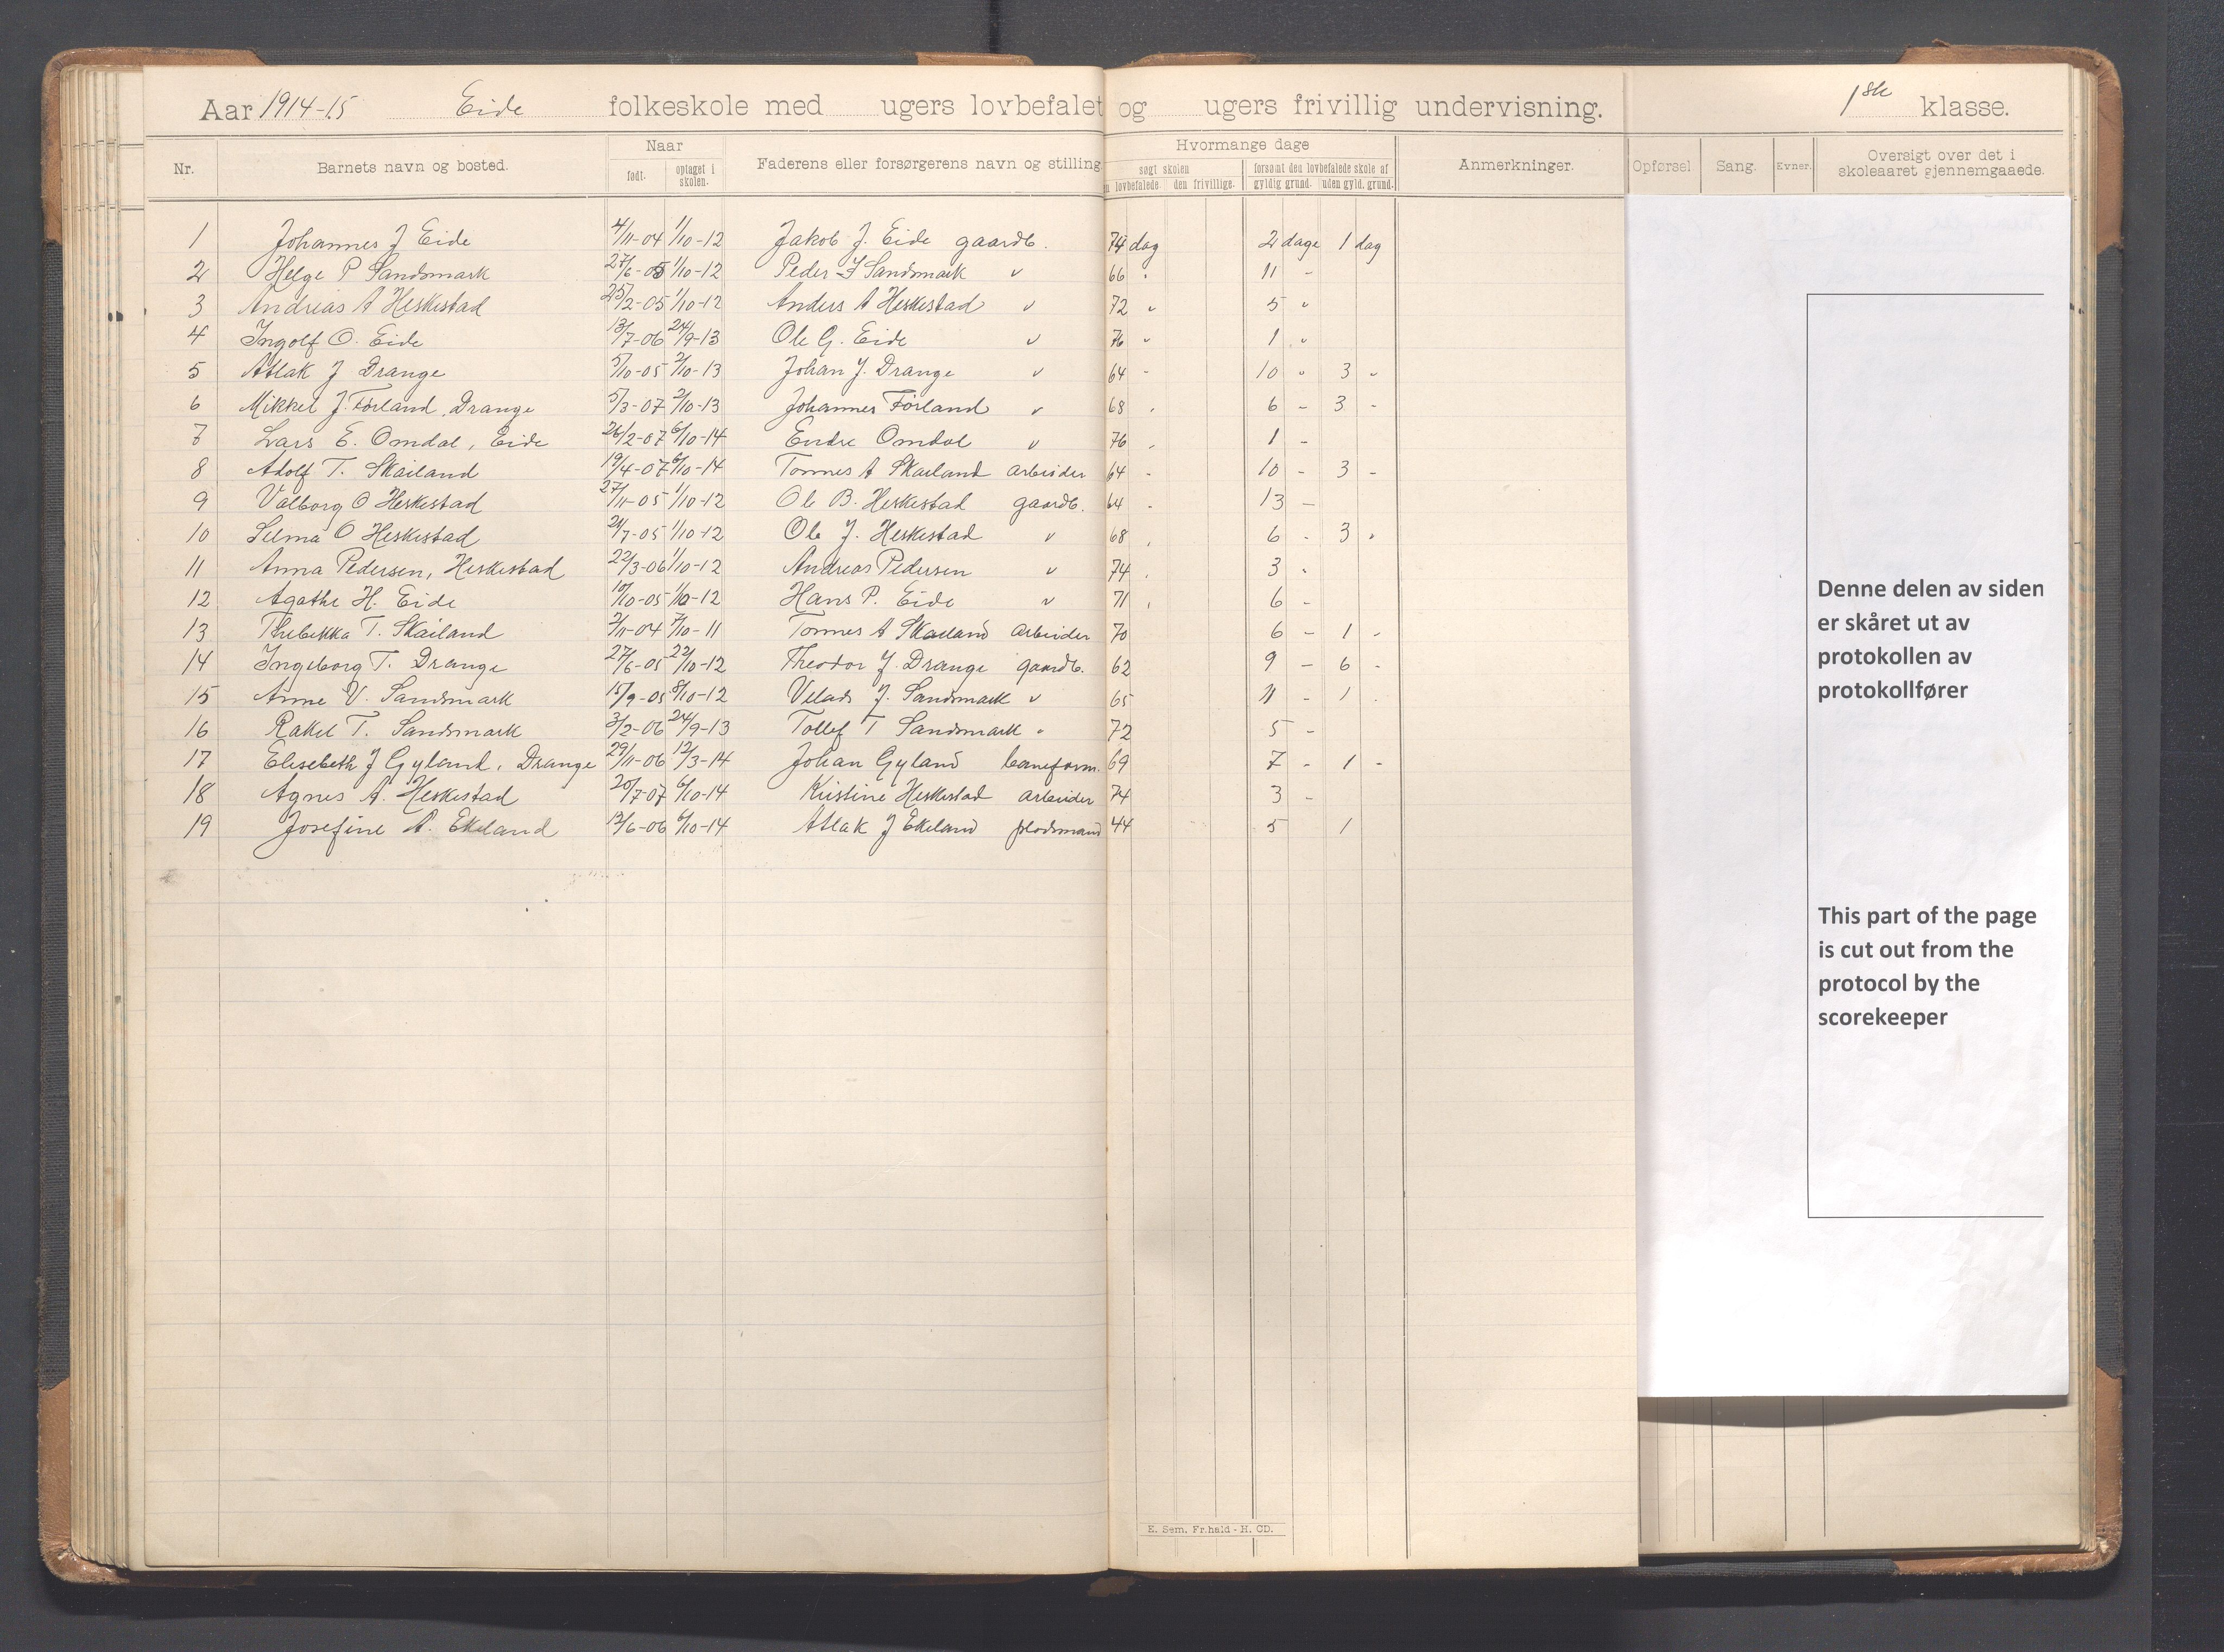 Aar 1914-15 Eide folkeskole med ugers lovbefalet og ugers frivillig undervisning. 1ste klasse.
Nr. Barnets navn og bosted. Naar Faderens eller forsørgerens navn og stilling Hvormange dage Anmerkninger. Opførsel Sang. Evner. Oversigt over det i skoleaaret gjennemgaaede.
født. optaget i skolen. søgt skolen forsømt den lovbefalede skole af
lovbefalede. den frivillige. gyldig grund. uden gyld. grund.
1 Johannes J Eide 4/11-04 1/10-12 Jakob J. Eide gaardb. 74 dag 2 dage 1 dag
2 Helge P Sandsmark 27/6-05 1/10-12 Peder Sandsmark " 66 " 11 -
3 Andreas A Heskestad 25/2-05 1/10-12 Anders A Heskestad " 72 " 5 "
4 Ingolf O. Eide 13/7-06 24/9-13 Ole G. Eide " 76 " 1 "
5 Atlak J Drange 5/10-05 2/10-13 Johan J. Drange " 64 - 10 " 3 "
6 Mikkel J. Førland, Drange 5/3-07 2/10-13 Johannes Førland " 68 , 6 - 3 -
7 Lars E. Omdal, Eide 26/2-07 6/10-14 Endre Omdal " 76 , 1 -
8 Adolf T. Skailand 19/4-07 6/10-14 Tonnes A Skailand arbeider 64 - 10 - 3 -
9 Valborg O Heskestad 27/11-05 1/10-12 Ole B. Heskestad gaardb. 64 - 13 -
10 Selma O Heskestad 24/7-05 1/10-12 Ole J. Heskestad " 68 , 6 - 3 "
11 Anna Pedersen, Heskestad 22/3-06 1/10-12 Andreas Pedersen " 74 , 3 "
12 Agathe H. Eide 10/10-05 1/10-12 Hans P. Eide " 71 , 6 -
13 Thebekka T. Skailand 2/11-04 7/10-11 Tonnes A Skailand arbeider 70 6 - 1 -
14 Ingeborg T. Drange 27/6-05 22/10-12 Theodor J. Drange gaardb. 62 9 - 6 -
15 Anne V. Sandsmark 15/9-05 8/10-12 Velads J. Sandsmark " 65 11 - 1 .
16 Rakel T. Sandsmark 3/2-06 24/9-13 Tollef T Sandsmark " 72 5 -
17 Elisebeth J Gyland, Drange 29/11-06 12/3-14 Johan Gyland baneform. 69 7 - 1 -
18 Agnes A. Heskestad 20/7-07 6/10-14 Kristine Heskestad arbeider 74 3 -
19 Josefine A. Ekeland 12/6-06 6/10-14 Atlak J Ekeland pladsmand 44 5 1
E. Sem. Fr.hald - H. CD.
Denne delen av siden
er skåret ut av
protokollen av
protokollfører
This part of the page
is cut out from the
protocol by the
scorekeeper